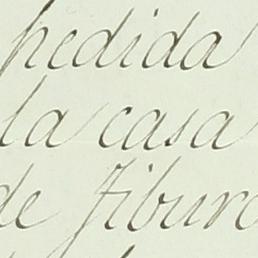 pedida
la casa
de Tiburc